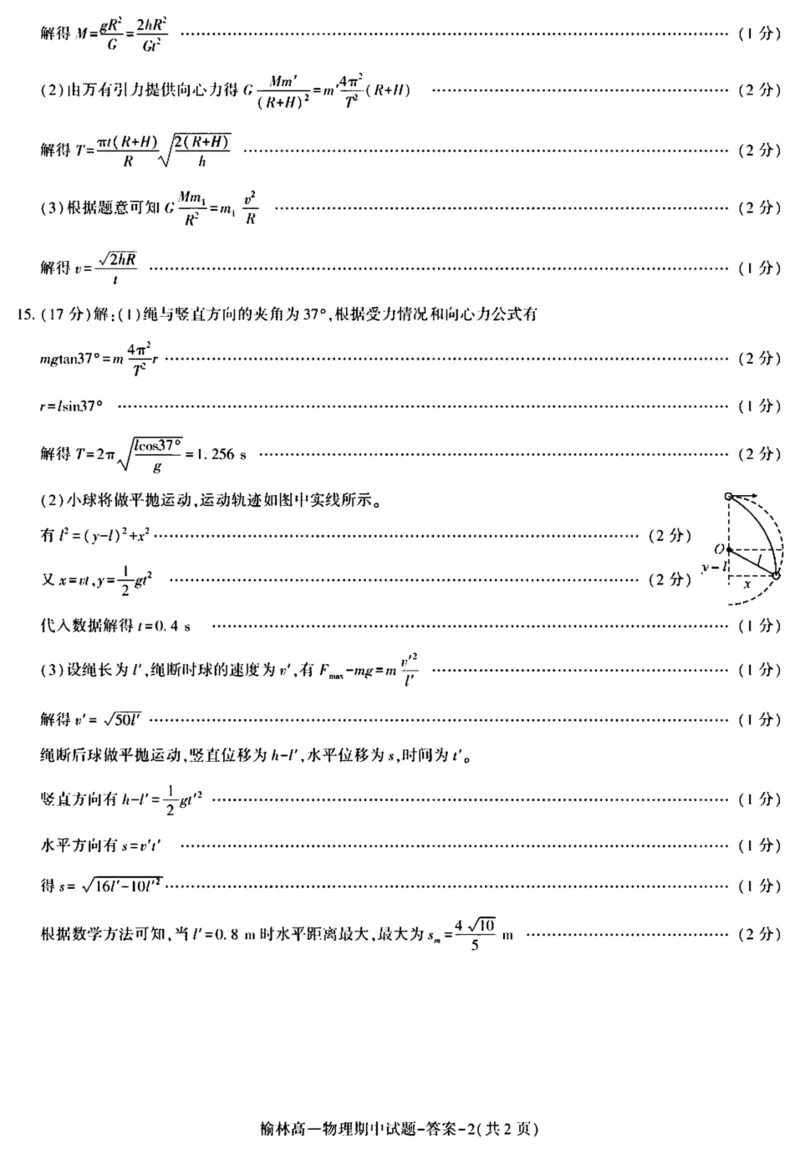 解得 M=gR²/G=2hR²/Gt² ……(1 分)
(2)由万有引力提供向心力得 G Mm′/(R+H)²=m′4π²/T²(R+H) ……(2 分)
解得 T=πt(R+H)/R √(2(R+H)/h) ……(2 分)
(3)根据题意可知 G Mm₁/R²=m₁ v²/R ……(2 分)
解得 v=√(2hR)/t ……(1 分)
15. (17 分)解:(1)绳与竖直方向的夹角为 37°,根据受力情况和向心力公式有
mgtan37°=m 4π²/T² r ……(2 分)
r=lsin37° ……(1 分)
解得 T=2π√(lcos37°/g)=1.256 s ……(2 分)
(2)小球将做平抛运动,运动轨迹如图中实线所示。
有 l²=(y-l)²+x² ……(2 分)
又 x=vt,y=1/2 gt² ……(2 分)
O
l
y-l
x
代入数据解得 t=0.4 s ……(1 分)
(3)设绳长为 l′,绳断时球的速度为 v′,有 Fmax-mg=m v′²/l′ ……(1 分)
解得 v′=√(50l′) ……(1 分)
绳断后球做平抛运动,竖直位移为 h-l′,水平位移为 s,时间为 t′。
竖直方向有 h-l′=1/2 gt′² ……(1 分)
水平方向有 s=v′t′ ……(1 分)
得 s=√(16l′-10l′²) ……(1 分)
根据数学方法可知,当 l′=0.8 m 时水平距离最大,最大为 sm=4√10/5 m ……(2 分)
榆林高一物理期中试题-答案-2(共 2 页)